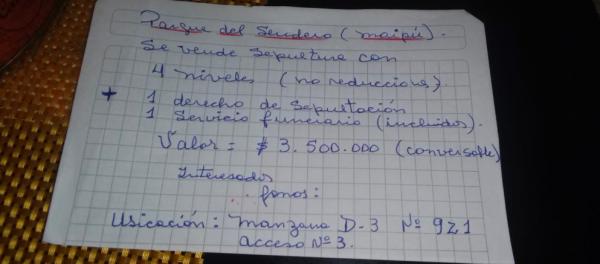 Parque del Sendero (maipú).
Se vende sepultura con
4 niveles (no reducciones).
+ 1 derecho de Sepultación
1 Servicio funerario (incluidos).
Valor = $ 3.500.000 (conversable)
Interesados
fonos:
Ubicación: manzana D-3 Nº 921
acceso Nº 3.